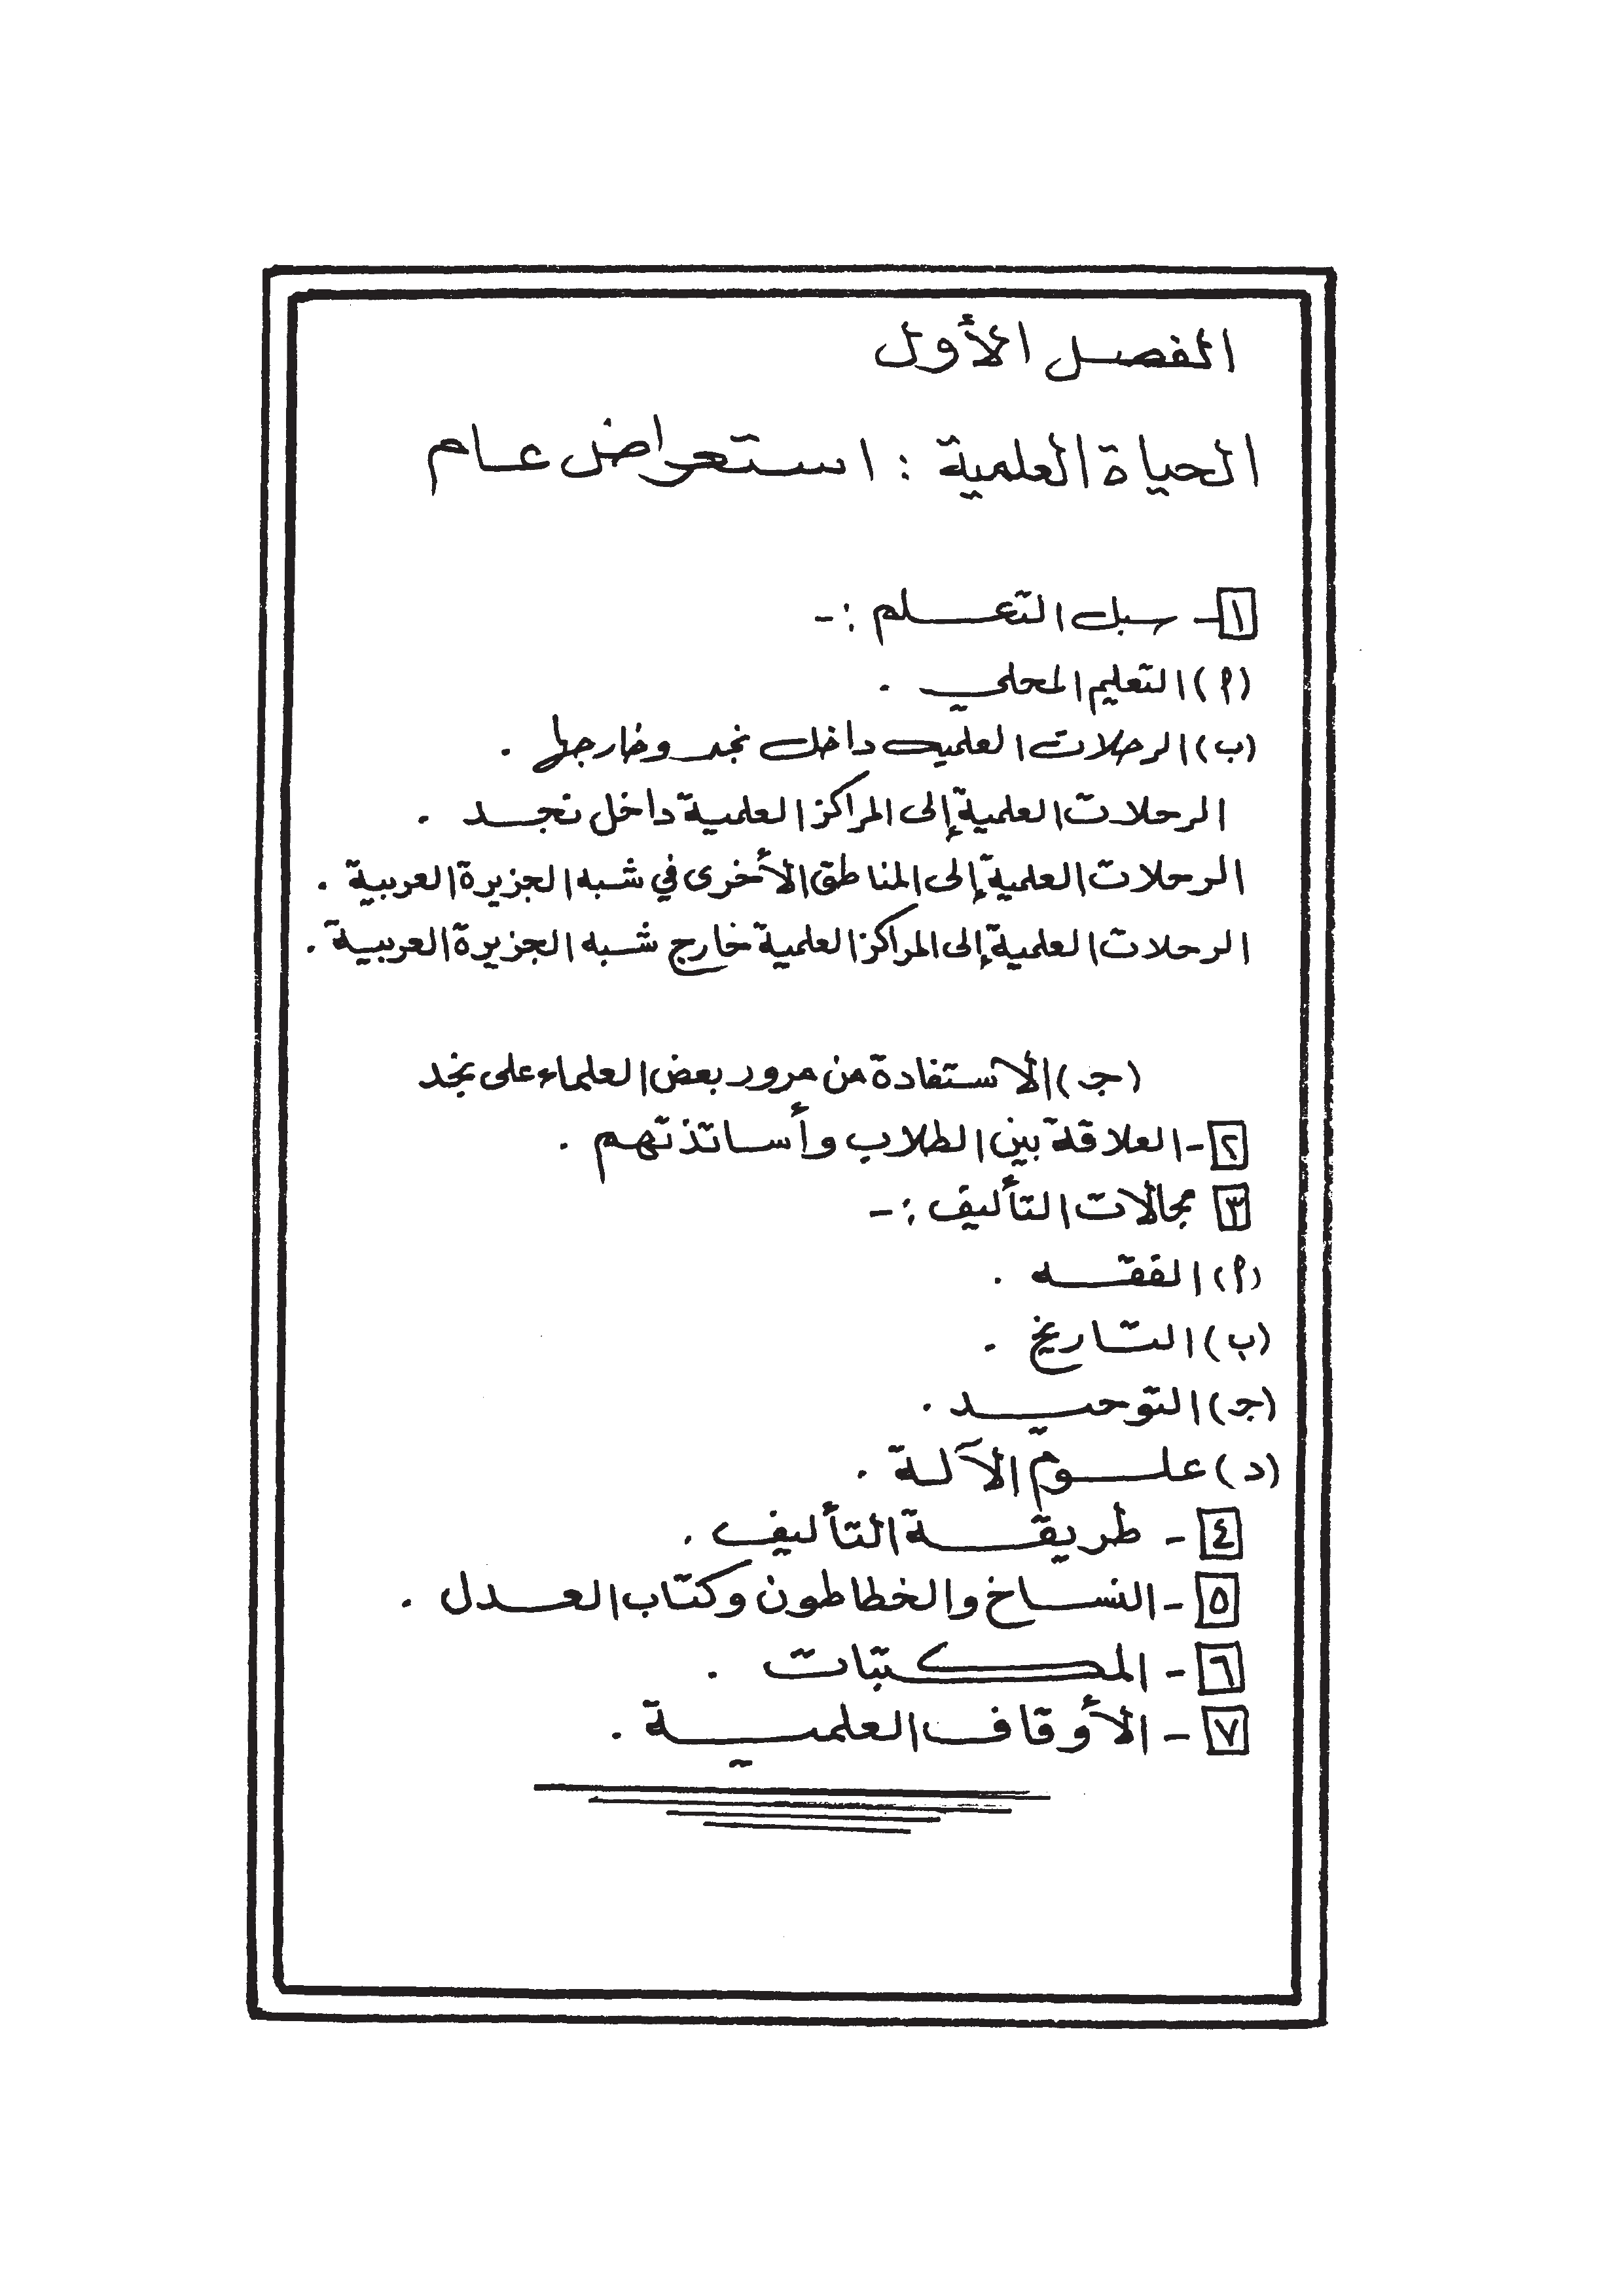 الفصل الأول
الحياة العلمية : استعراض عام
١- سبل التعلم :-
(أ) التعليم المحلي .
(ب) الرحلات العلمية داخل نجد وخارجها .
الرحلات العلمية إلى المراكز العلمية داخل نجد .
الرحلات العلمية إلى المناطق الأخرى في شبه الجزيرة العربية .
الرحلات العلمية إلى المراكز العلمية خارج شبه الجزيرة العربية .
(جـ) الاستفادة من مرور بعض العلماء على نجد
٢- العلاقة بين الطلاب وأساتذتهم .
٣ مجالات التأليف :-
(أ) الفقه .
(ب) التاريخ .
(جـ) التوحيد .
(د) علوم الآلة .
٤ - طريقة التأليف .
٥ - النساخ والخطاطون وكتاب العدل .
٦ - المكتبات .
٧ - الأوقاف العلمية .